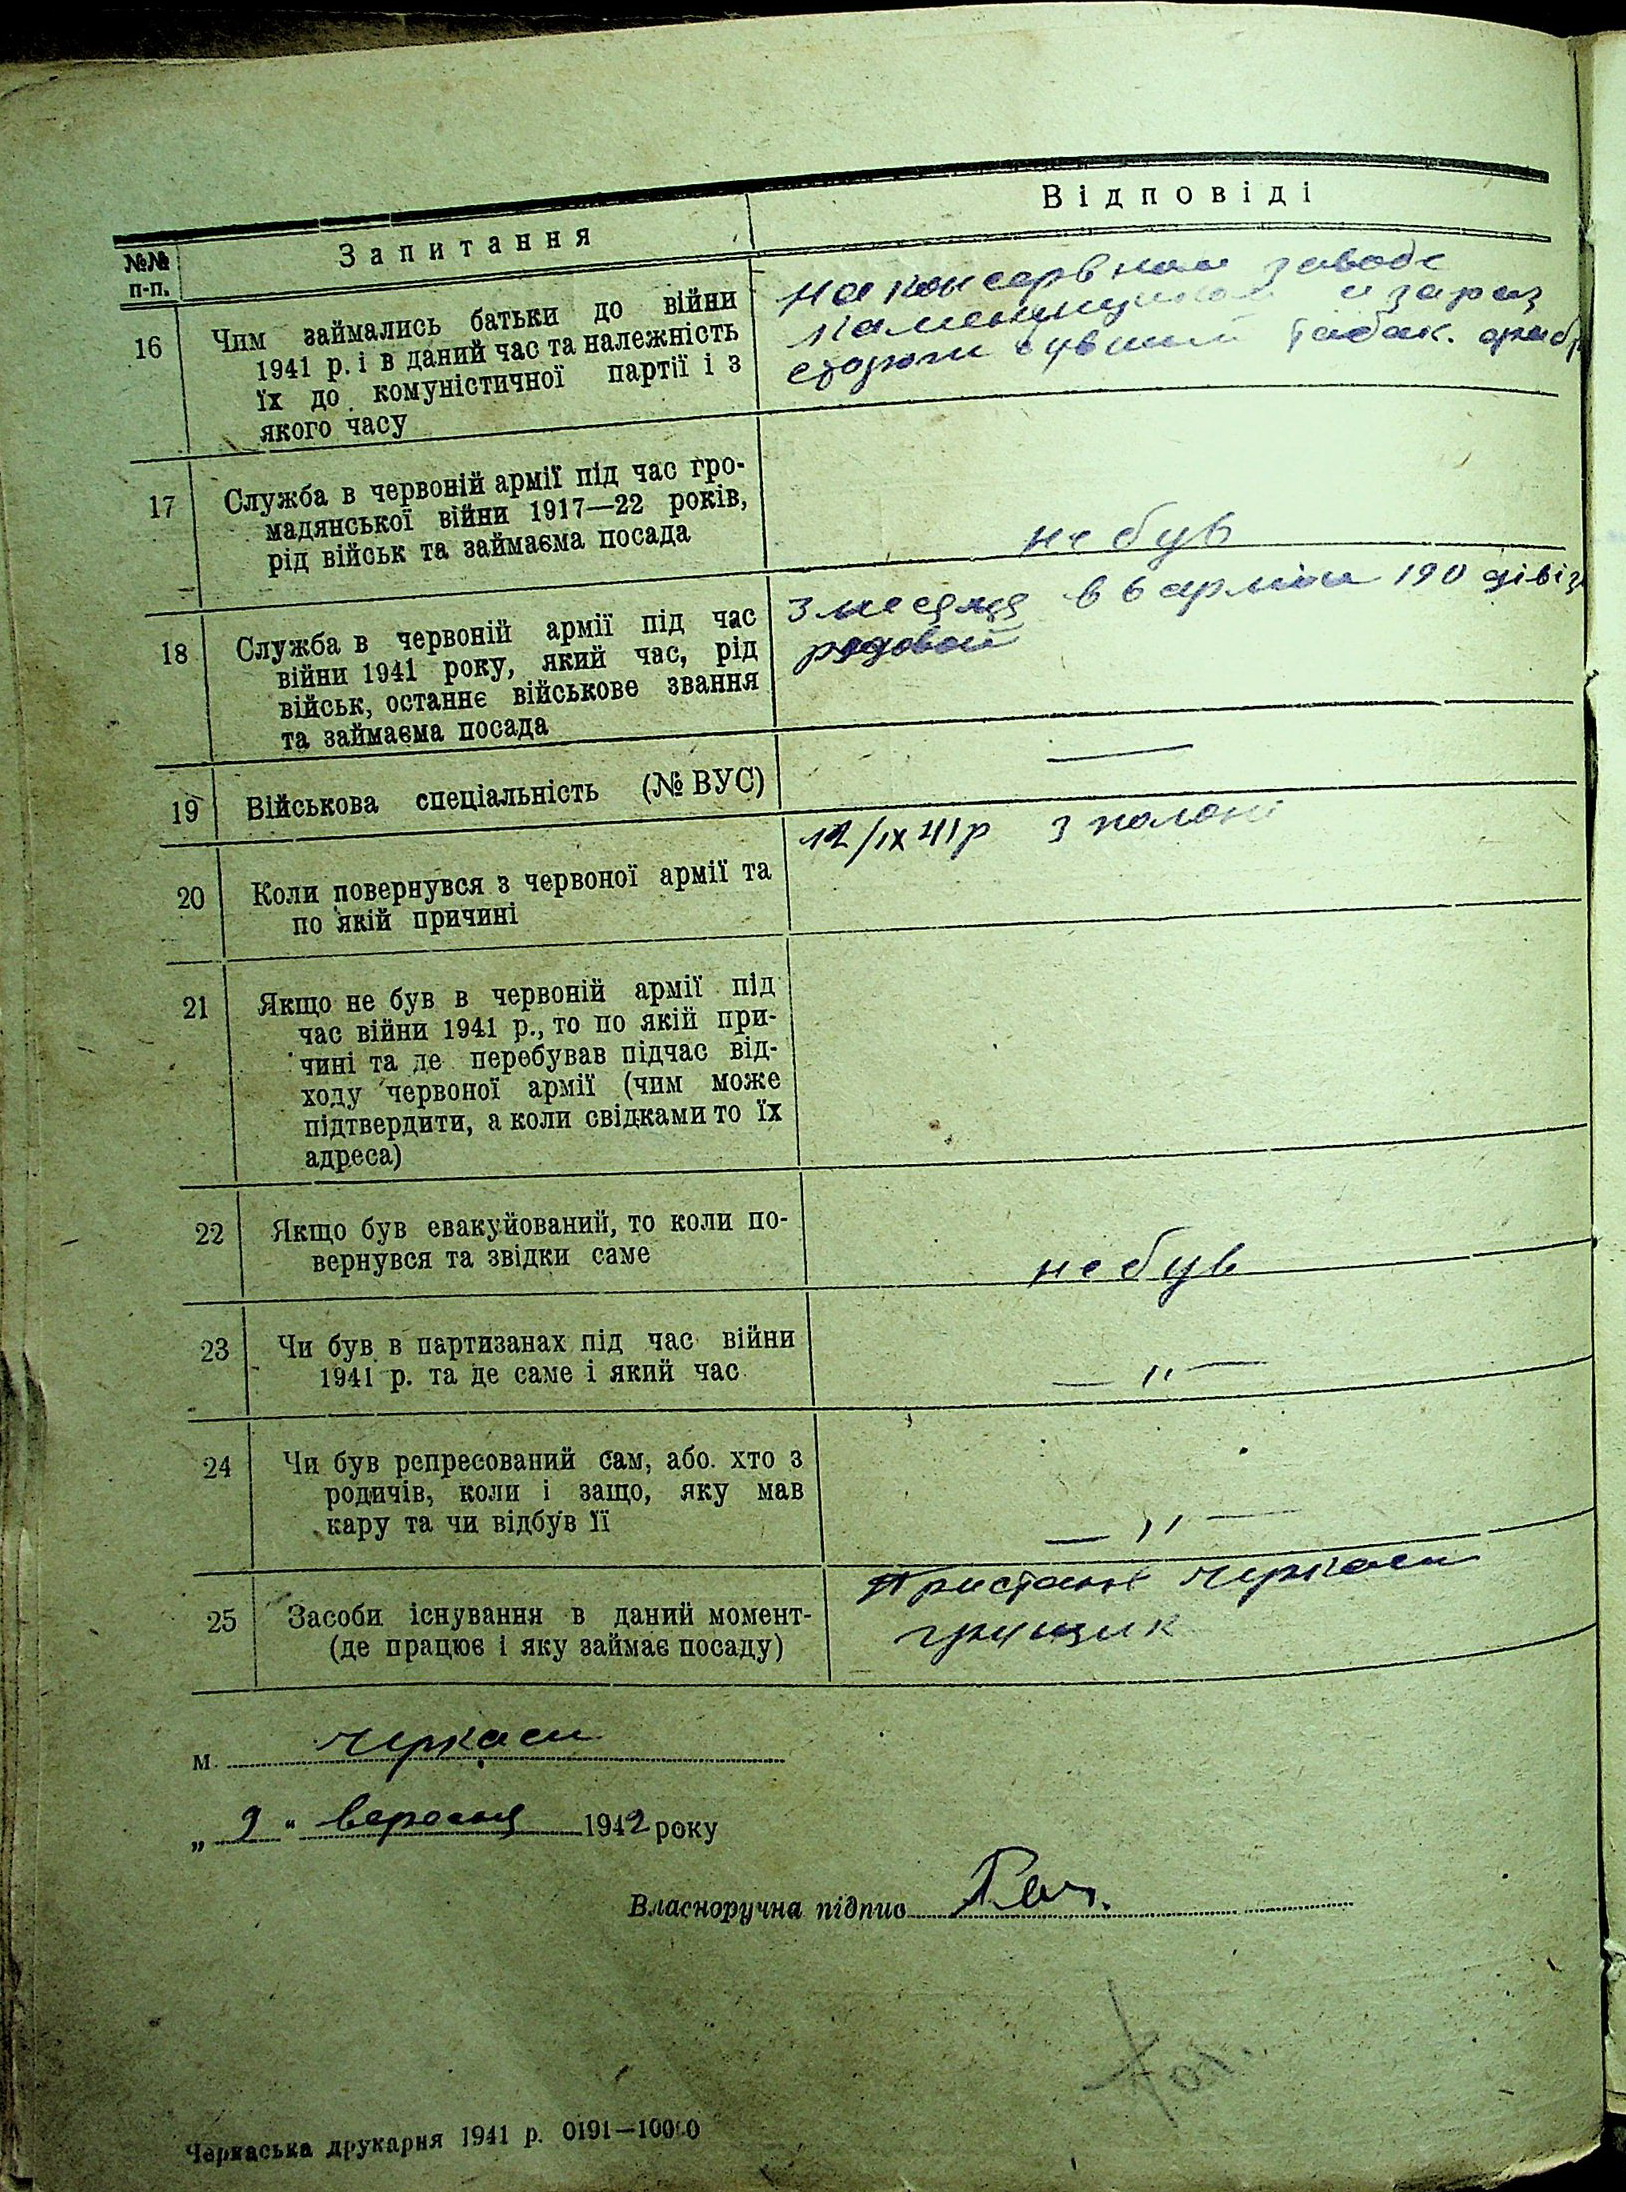 №№ п-п.
Запитання
Відповіді
16
Чим займались батьки до війни
1941 р. і в даний час та належність
їх до комуністичної партії і з
якого часу
На консервном заводе
а зараз
сторож бувший табак.
17
Служба в червоній армії під час гро-
мадянської війни 1917—22 років,
рід військ та займаєма посада
не був
18
Служба в червоній армії під час
війни 1941 року, який час, рід
військ, останнє військове звання
та займаєма посада
3 месяця в 6 армии 190 дівіз
рядовой
19
Військова спеціальність (№ ВУС)
—
20
Коли повернувся з червоної армії та
по якій причині
12/IX 41р з полону
21
Якщо не був в червоній армії під
час війни 1941 р., то по якій при-
чині та де перебував підчас від-
ходу червоної армії (чим може
підтвердити, а коли свідками то їх
адреса)
22
Якщо був евакуйований, то коли по-
вернувся та звідки саме
не був
23
Чи був в партизанах під час війни
1941 р. та де саме і який час
— " —
24
Чи був репресований сам, або хто з
родичів, коли і защо, яку мав
кару та чи відбув її
— " —
25
Засоби існування в даний момент-
(де працює і яку займає посаду)
Пристань Черкаси
грущик
м. Черкаси
„ 9 “ вересня 1942 року
Власноручна підпис
Черкаська друкарня 1941 р. 0191—10000